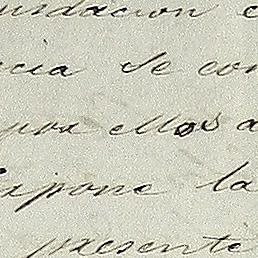 undacion c
cia se con
por ellos a
Expone la
presente